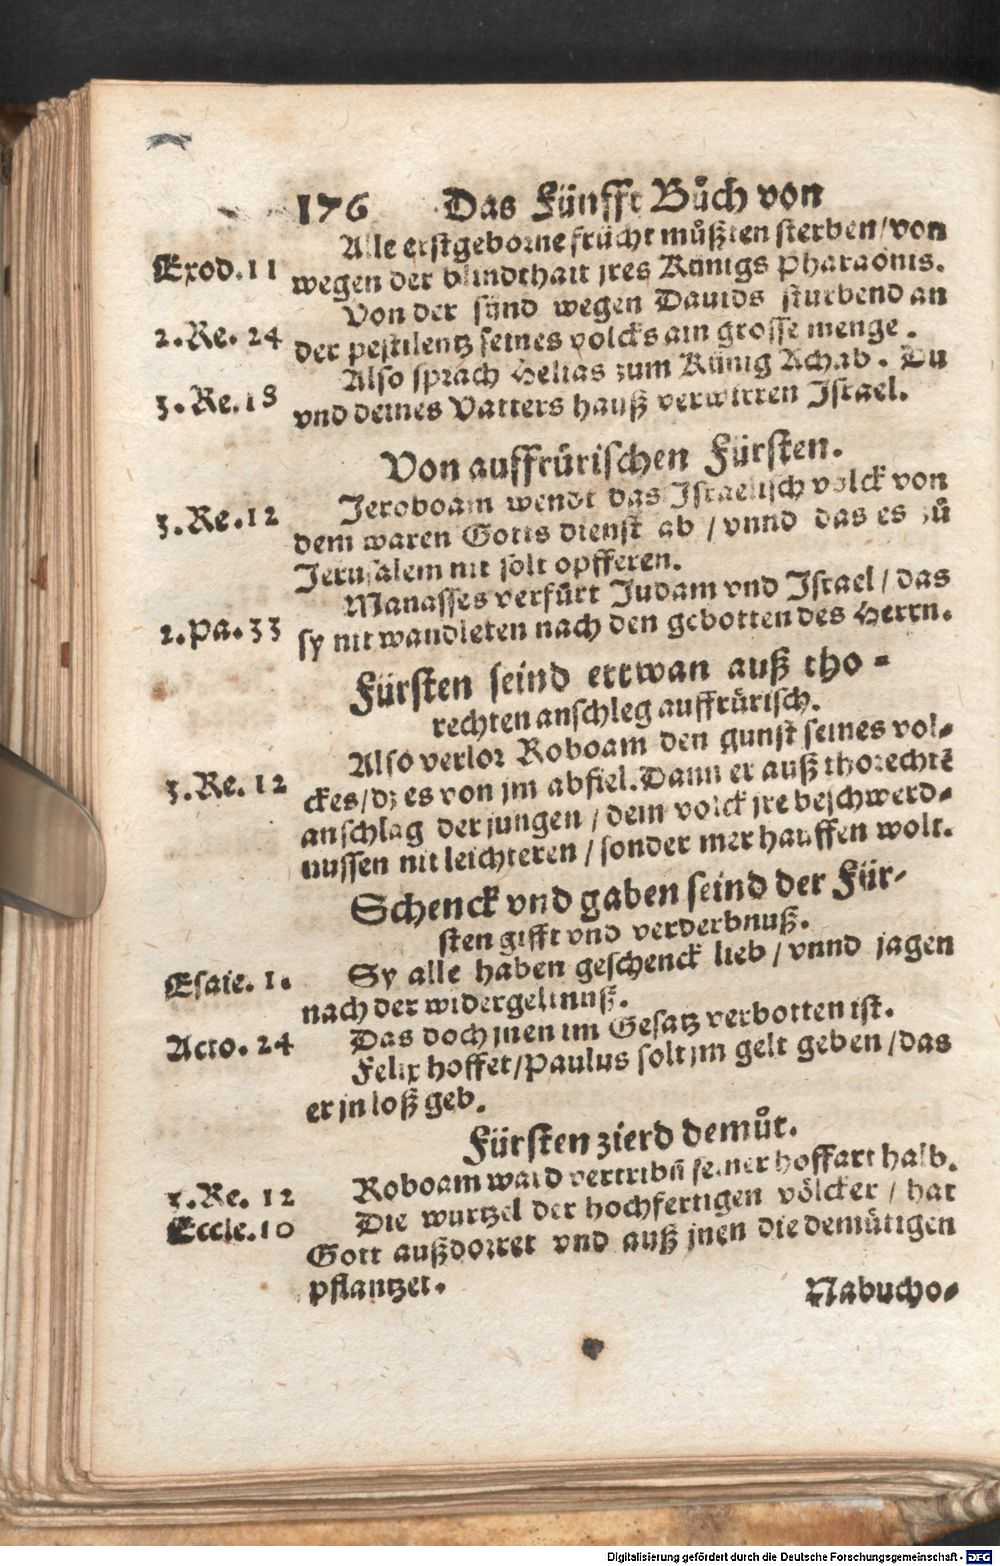 176 Das Fünfft Bůch von
Alle erstgeborne frücht můßten sterben / von
Exod. 11
wegen der blindthait jres Künigs Pharaonis.
Von der sünd wegen Dauids sturbend an
2. Re. 24
der pestilentz seines volcks ain grosse menge.
Also sprach Helias zum Künig Achab. Du
3. Re. 18
vnd deines Vatters hauß verwirren Israel.
Von auffrürischen Fürsten.
Jeroboam wendt das Israelisch volck von
3. Re. 12
dem waren Gotts dienst ab / vnnd das es zů
Jerusalem nit solt opfferen.
Manasses verfürt Judam vnd Israel / das
2. Pa. 33
sy nit wandleten nach den gebotten des Herrn.
Fürsten seind ettwan auß tho-
rechten anschleg auffrürisch.
Also verlor Roboam den gunst seines vol-
3. Re. 12
ckes / dz es von jm abfiel. Dann er auß thorechtē
anschlag der jungen / dem volck jre beschwerd-
nussen nit leichteren / sonder mer hauffen wolt.
Schenck vnd gaben seind der Für-
sten gifft vnd verderbnuß.
Esaie. 1.
Sy alle haben geschenck lieb / vnnd jagen
nach der widergeltnuß.
Das doch jnen im Gesatz verbotten ist.
Acto. 24
Felix hoffet / Paulus solt jm gelt geben / das
er jn loß geb.
Fürsten zierd demůt.
Roboam ward vertribn̄ seiner hoffart halb.
3. Re. 12
Die wurtzel der hochfertigen völcker / hat
Eccle. 10
Gott außdorret vnd auß jnen die demütigen
pflantzet.
Nabucho-
Digitalisierung gefördert durch die Deutsche Forschungsgemeinschaft - DFG